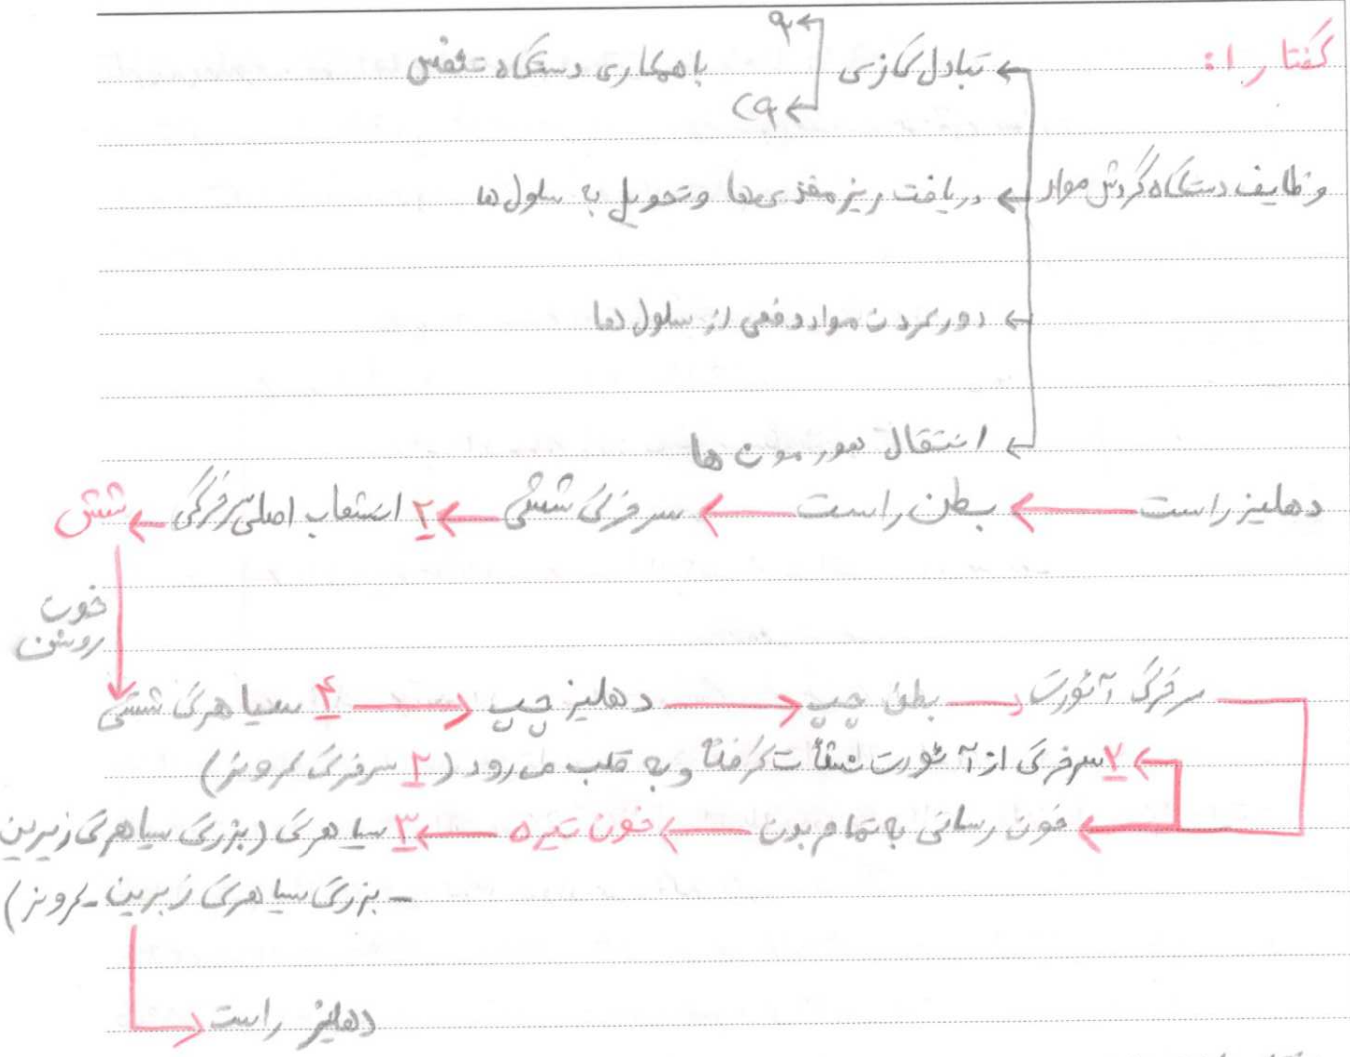 گفتار ۱:
وظایف دستگاه گردش مواد
← تبادل گازی
با همکاری دستگاه تنفس
← دریافت ریزمغذی‌ها و تحویل به سلول‌ها
← دور کردن مواد دفعی از سلول‌ها
← انتقال هورمون‌ها
دهلیز راست ← بطن راست ← سرخرگ ششی ← ۲ انشعاب اصلی سرخرگی ← شش
خون
روشن
۴ سیاهرگ ششی → دهلیز چپ → بطن چپ → سرخرگ آئورت
← ۷ سرخرگی از آئورت نشأت گرفته و به قلب می‌رود (۲ سرخرگ کرونر)
← خون رسانی به تمام بدن ← خون تیره ← ۳ سیاهرگ (بزرگ سیاهرگ زبرین
- بزرگ سیاهرگ زبرین - کرونر)
→ دهلیز راست